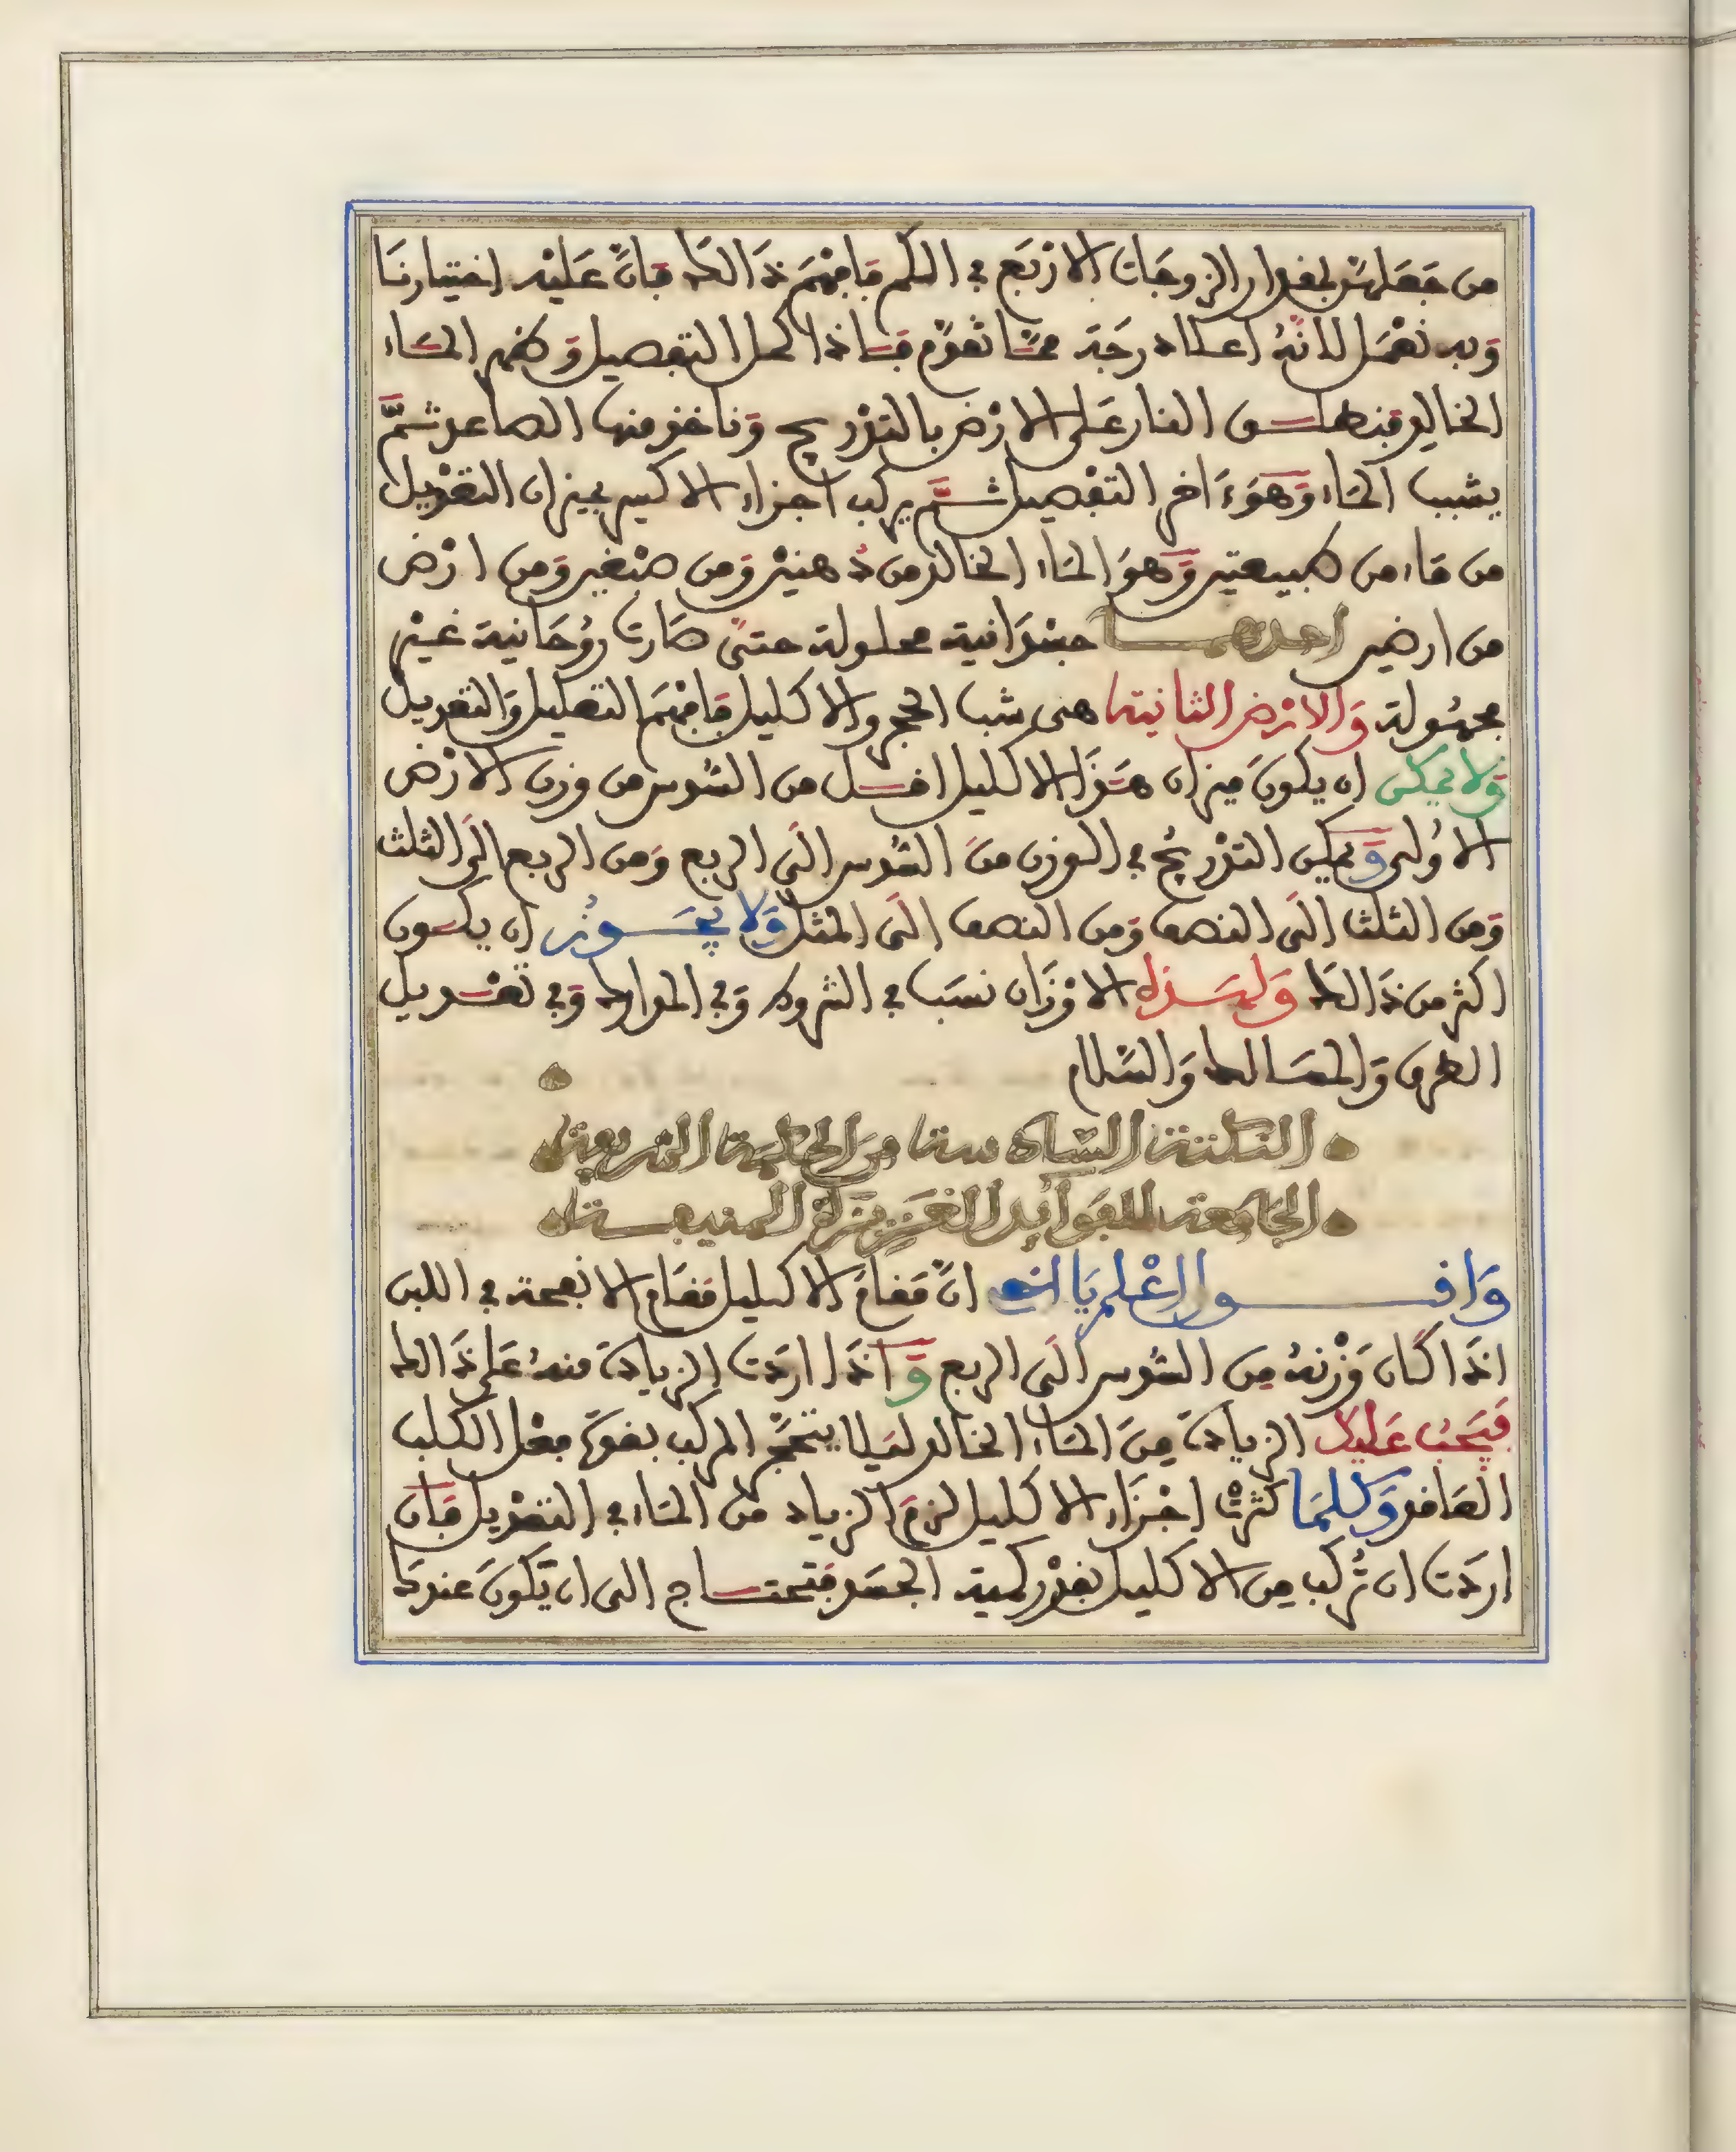 من جَعَلهنّ بمقدار الزوجَات الارْبَع في الكم فافهَم ذَالك فانّ عَليْه اختيارنَا
وَبه نعْمَل لانّهُ اعلا درجَة ممّا تقوّم فاذا كمل التفصيل وَظهر المَاء
الخالد فنطلق النار عَلى الارْض بالتدْريج وَناخذ منها الصاعد ثمَّ
يشبب المَاء وَهوَ ءَاخر التفصيل ثمَّ يركب اجزاء الاكسير بميزان التعْديل
من مَاء من طبيعتين وَهوَ المَاء الخالد من دُهنيْن وَمن صبْغين وَمن ارْض
من ارضين احداهما جسْدَانية محلولة حتىّ صَارت رُوُحَانية غيْر
مجهُولة وَالارْض الثانية هى شب الحجر والاكليل فافهَم التعليل وَالتعديل
وَلا يمكن ان يكونَ ميزان هَذَا الاكليل اقل من السُّدس من وزن الارْض
الاوُلى وَيمكن التدْريجُ في الوزن منَ السُّدس الَى الربع وَمن الربع الَى الثلث
وَمن الثلث الَى النصف وَمن النصف الَى المثل وَلا يجَوُز ان يكون
اكثر من ذَالك وَلهَذه الاوْزَان نسَب في الشروط وَفي المَوارد وَفي تعْديل
الطرق وَالمسَالك وَالسَّلام
النكتة السَّادسة منَ الحكمة الشريفة
الجَامعَة للفوَائد الغَزيزَة المنيفة
وَاقول اعْلم يَا اخي انّ مَقامَ الاكليل مَقام الانفحة في اللبن
اذَا كَان وَزْنهُ مِن السُّدس الَى الربع وَاذَا اردَت الزيادَة منهُ عَلى ذَالك
فيَجبُ عَليكَ الزيادَة مِنَ المَاء الخالد لئلا يتحَجّر المركب بقوَّة فعْل الكلب
العَاقد وَكلمَا كثرَتْ اجْزَاء الاكليل لزمَ الزياد من المَاء في التعْديل فَان
اردَت ان تُركب مِن الاكليل بقدْر كمية الجسَد فتحتاج الى ان يَّكونَ عندكَ